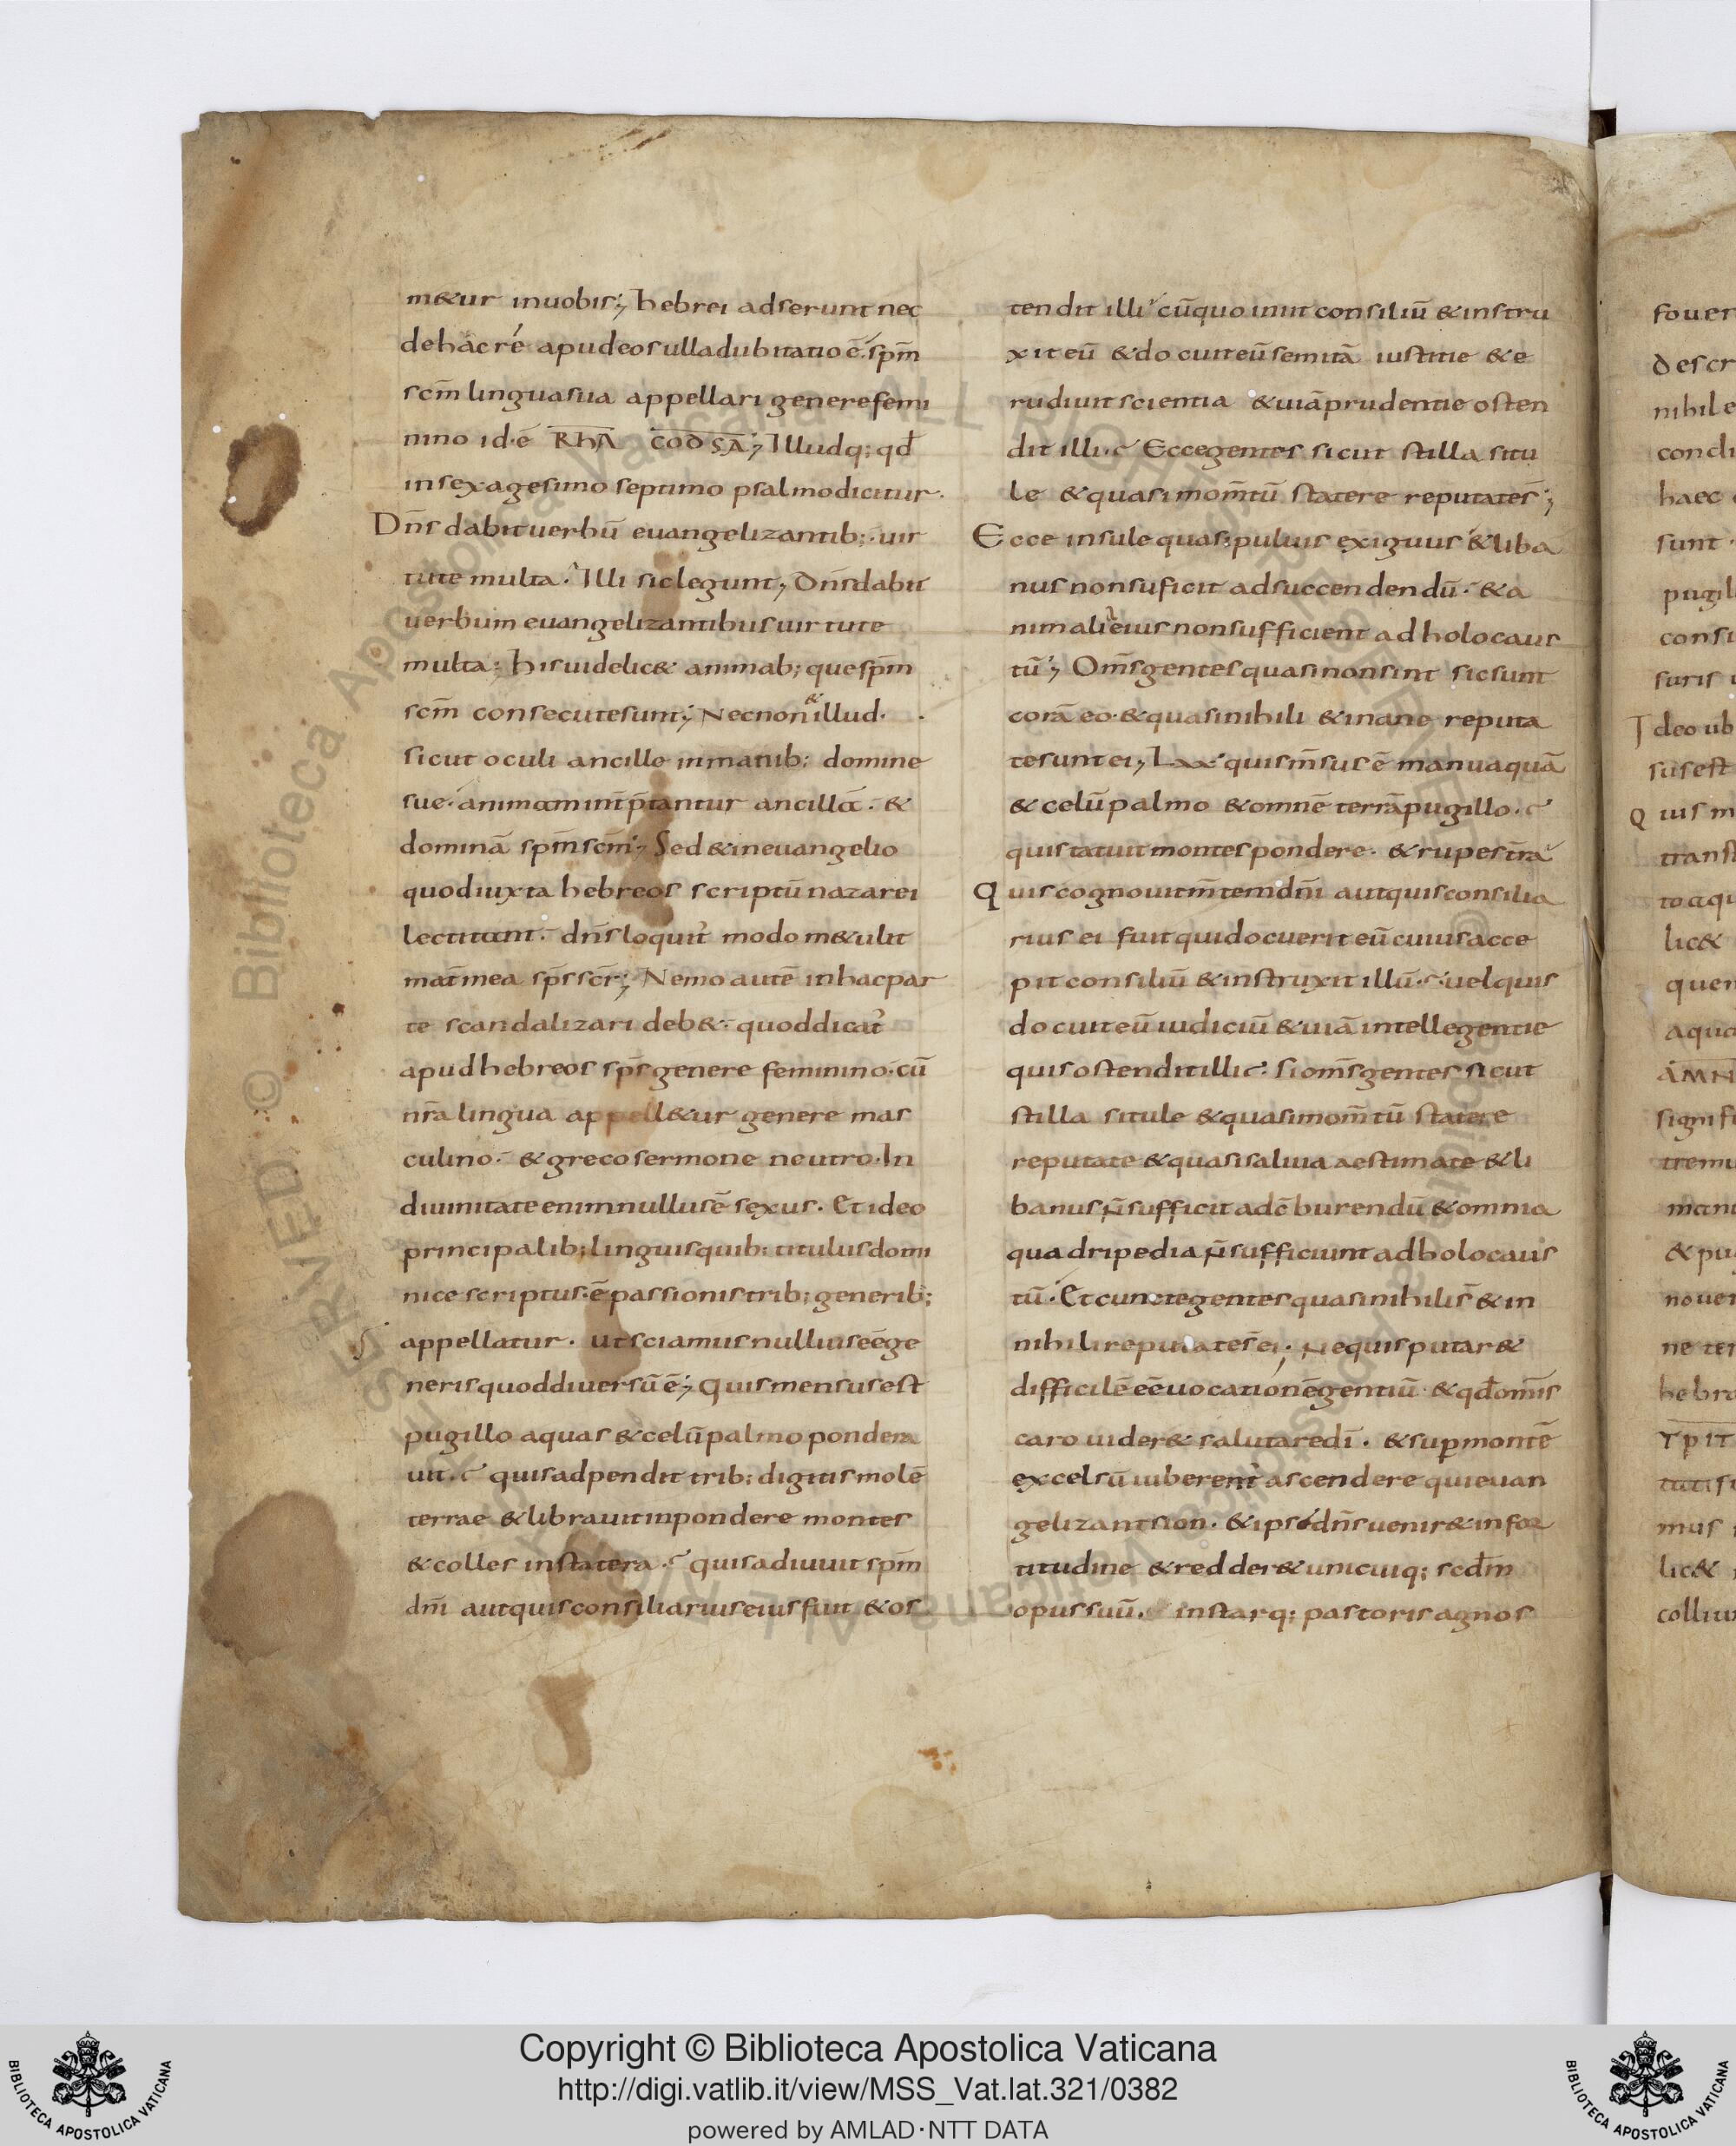 m&ur inuobis; hebrei adserunt nec
dehac re apud eos ulla dubitatio ē. sp̄m
sc̄m lingua sua appellari genere femi
nino id·ē RhA COD SA; Illudq; qđ
in sexagesimo septimo psalmo dicitur.
Dn̄s dabit uerbū euangelizantib; uir
tute multa. Illi sic legunt; dn̄s dabit
uerbum euangelizantibus uirtute
multa; his uidelic& animab; que sp̄m
sc̄m consecute sunt; Necnon & illud.
sicut oculi ancille in manib; domine
sue. animam int̄p̄tantur ancillā. &
dominā sp̄m sc̄m; Sed & in euangelio
quod iuxta hebreos scriptū nazarei
lectitant. dn̄s loquit̄ modo me tulit
mat̄ mea sp̄s sc̄s; Nemo autē in hac par
te scandalizari deb&. quod dicat̄
apud hebreos sp̄s genere feminino. cū
nr̄a lingua appell&ur genere mas
culino. & greco sermone neutro. In
diuinitate enim nullus ē sexus. Et ideo
principalib; linguis quib; titulus domi
nice scriptus ē passionis trib; generib;
appellatur. ut sciamus nullius eē ge
neris quod diuersū ē; Quis mensus est
pugillo aquas & celū palmo pondera
uit. quis adpendit trib; digitis molē
terrae & librauit in pondere montes
& colles in statera. quis adiuuit sp̄m
dn̄i aut quis consiliarius eius fuit & os
tendit illi cū quo iniit consiliū & instru
xit eū & docuit eū semitā iustitie & e
rudiuit scientia & uiā prudentie osten
dit illi. Ecce gentes sicut stilla situ
le & quasi mom̄tū statere reputate s̄;
Ecce insule quasi puluis exiguus & liba
nus non suficit ad succendendū. & a
nimalia eius non sufficient ad holocaus
tū; Om̄s gentes quasi non sint sic sunt
corā eo. & quasi nihili & inane reputa
te sunt ei; Lxx quis m̄sus ē manu aquā
& celū palmo & omnē terrā pugillo.
quis tatuit montes pondere. & rupes t̄rā
Quis cognouit m̄tem dn̄i aut quis consilia
rius ei fuit qui docuerit eū cuius acce
pit consiliū & instruxit illū. uel quis
docuit eū iudiciū & uiā intellegentie
quis ostendit illi. si om̄s gentes sicut
stilla situle & quasi mom̄tū statere
reputate & quasi saliua aestimate & li
banus n̄ sufficit ad cōburendū & omnia
quadripedia n̄ sufficiunt ad holocaus
tū. Et cuncte gentes quasi nihili s̄ & in
nihili reputate s̄ ei; Ne quis putar&
difficilē eē uocationē gentiū & qđ om̄is
caro uider& salutare dī. & sup montē
excelsū iuberent̄ ascendere qui euan
gelizant sion. & ipse dn̄s uenir& in for
titudine & redder& unicuiq; scđm
opus suū. instarq; pastoris agnos